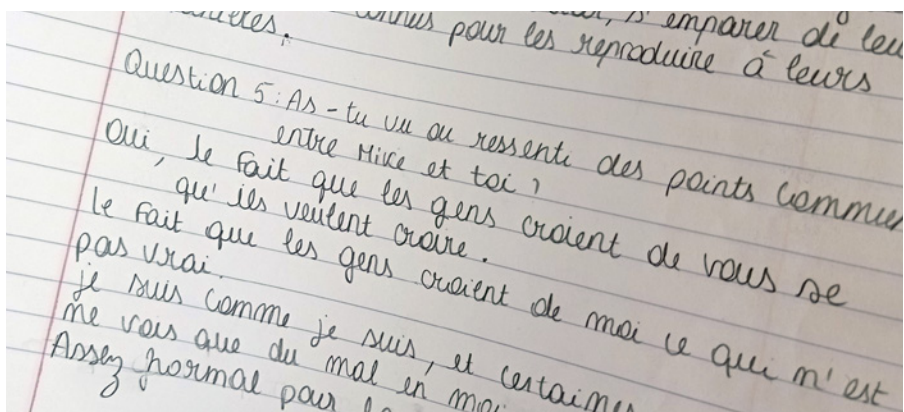 s'emparer de leu
pour les reproduire à leurs
Question 5 : As-tu vu ou ressenti des points commun
entre Mike et toi ?
Oui, le fait que les gens croient de vous se
qu'ils veulent croire.
Le fait que les gens croient de moi ce qui n'est
pas vrai.
je suis comme je suis, et certaines
ne vois que du mal en moi
Assez normal pour